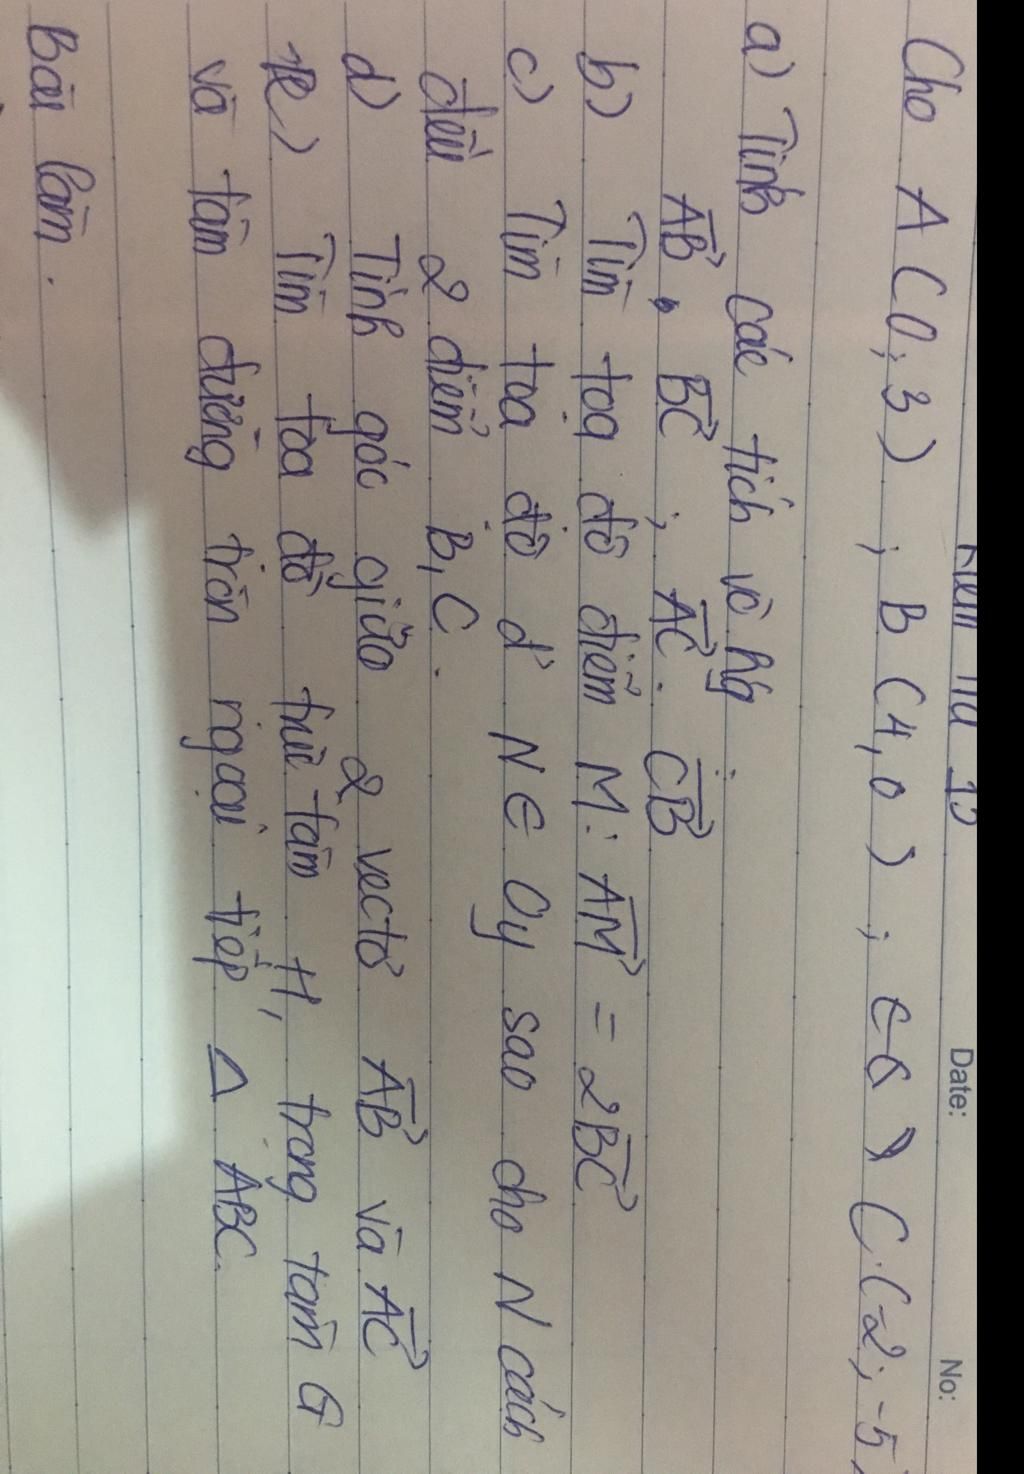 Date: No:
Cho A (0; 3) ; B (4, 0) ; C (-2; -5
a) Tính các tích vô hg:
AB . BC ; AC . CB
b) Tìm tọa độ điểm M: AM = 2BC
c) Tìm tọa độ đ' N ∈ Oy sao cho N cách
đều 2 điểm B, C.
d) Tính góc giữa 2 vectơ AB và AC
e) Tìm tọa độ trực tâm H, trọng tâm G
và tâm đường tròn ngoại tiếp Δ ABC.
Bài làm.